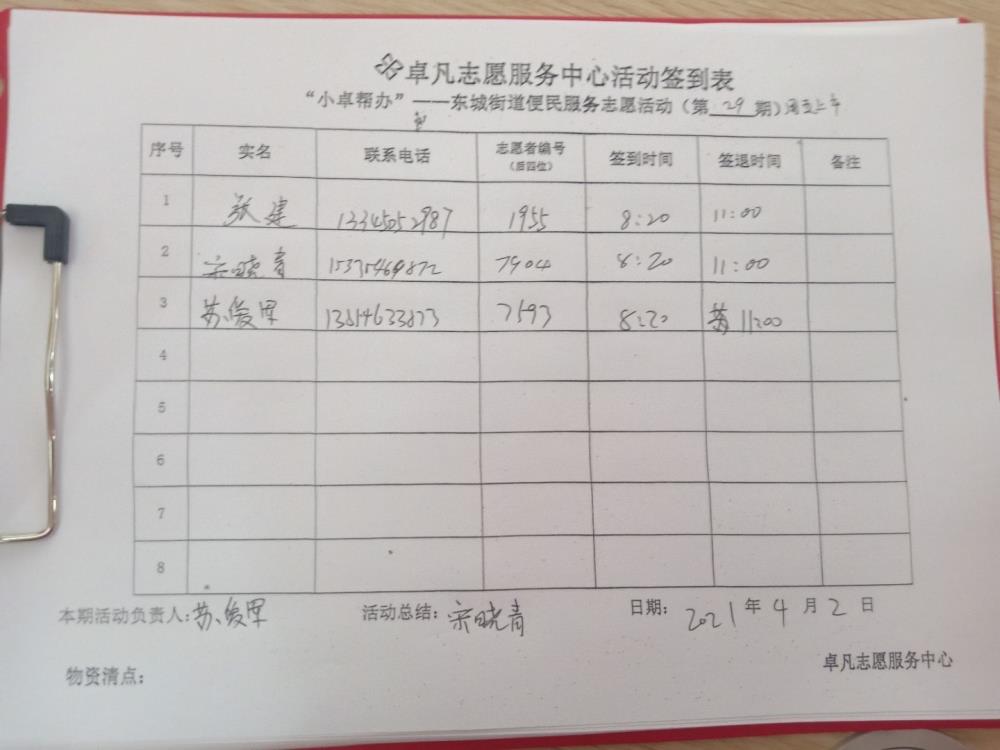 卓凡志愿服务中心活动签到表
“小卓帮办”——东城街道便民服务志愿活动（第29期）周五上午
序号 实名 联系电话 志愿者编号（后四位） 签到时间 签退时间 备注
1 张建 13345052987 1955 8:20 11:00
2 宋晓青 15335469872 7904 8:20 11:00
3 苏俊军 7593 8:20 11:00
4
5
6
7
8
本期活动负责人：苏俊军 活动总结：宋晓青 日期：2021年4月2日
卓凡志愿服务中心
物资清点：